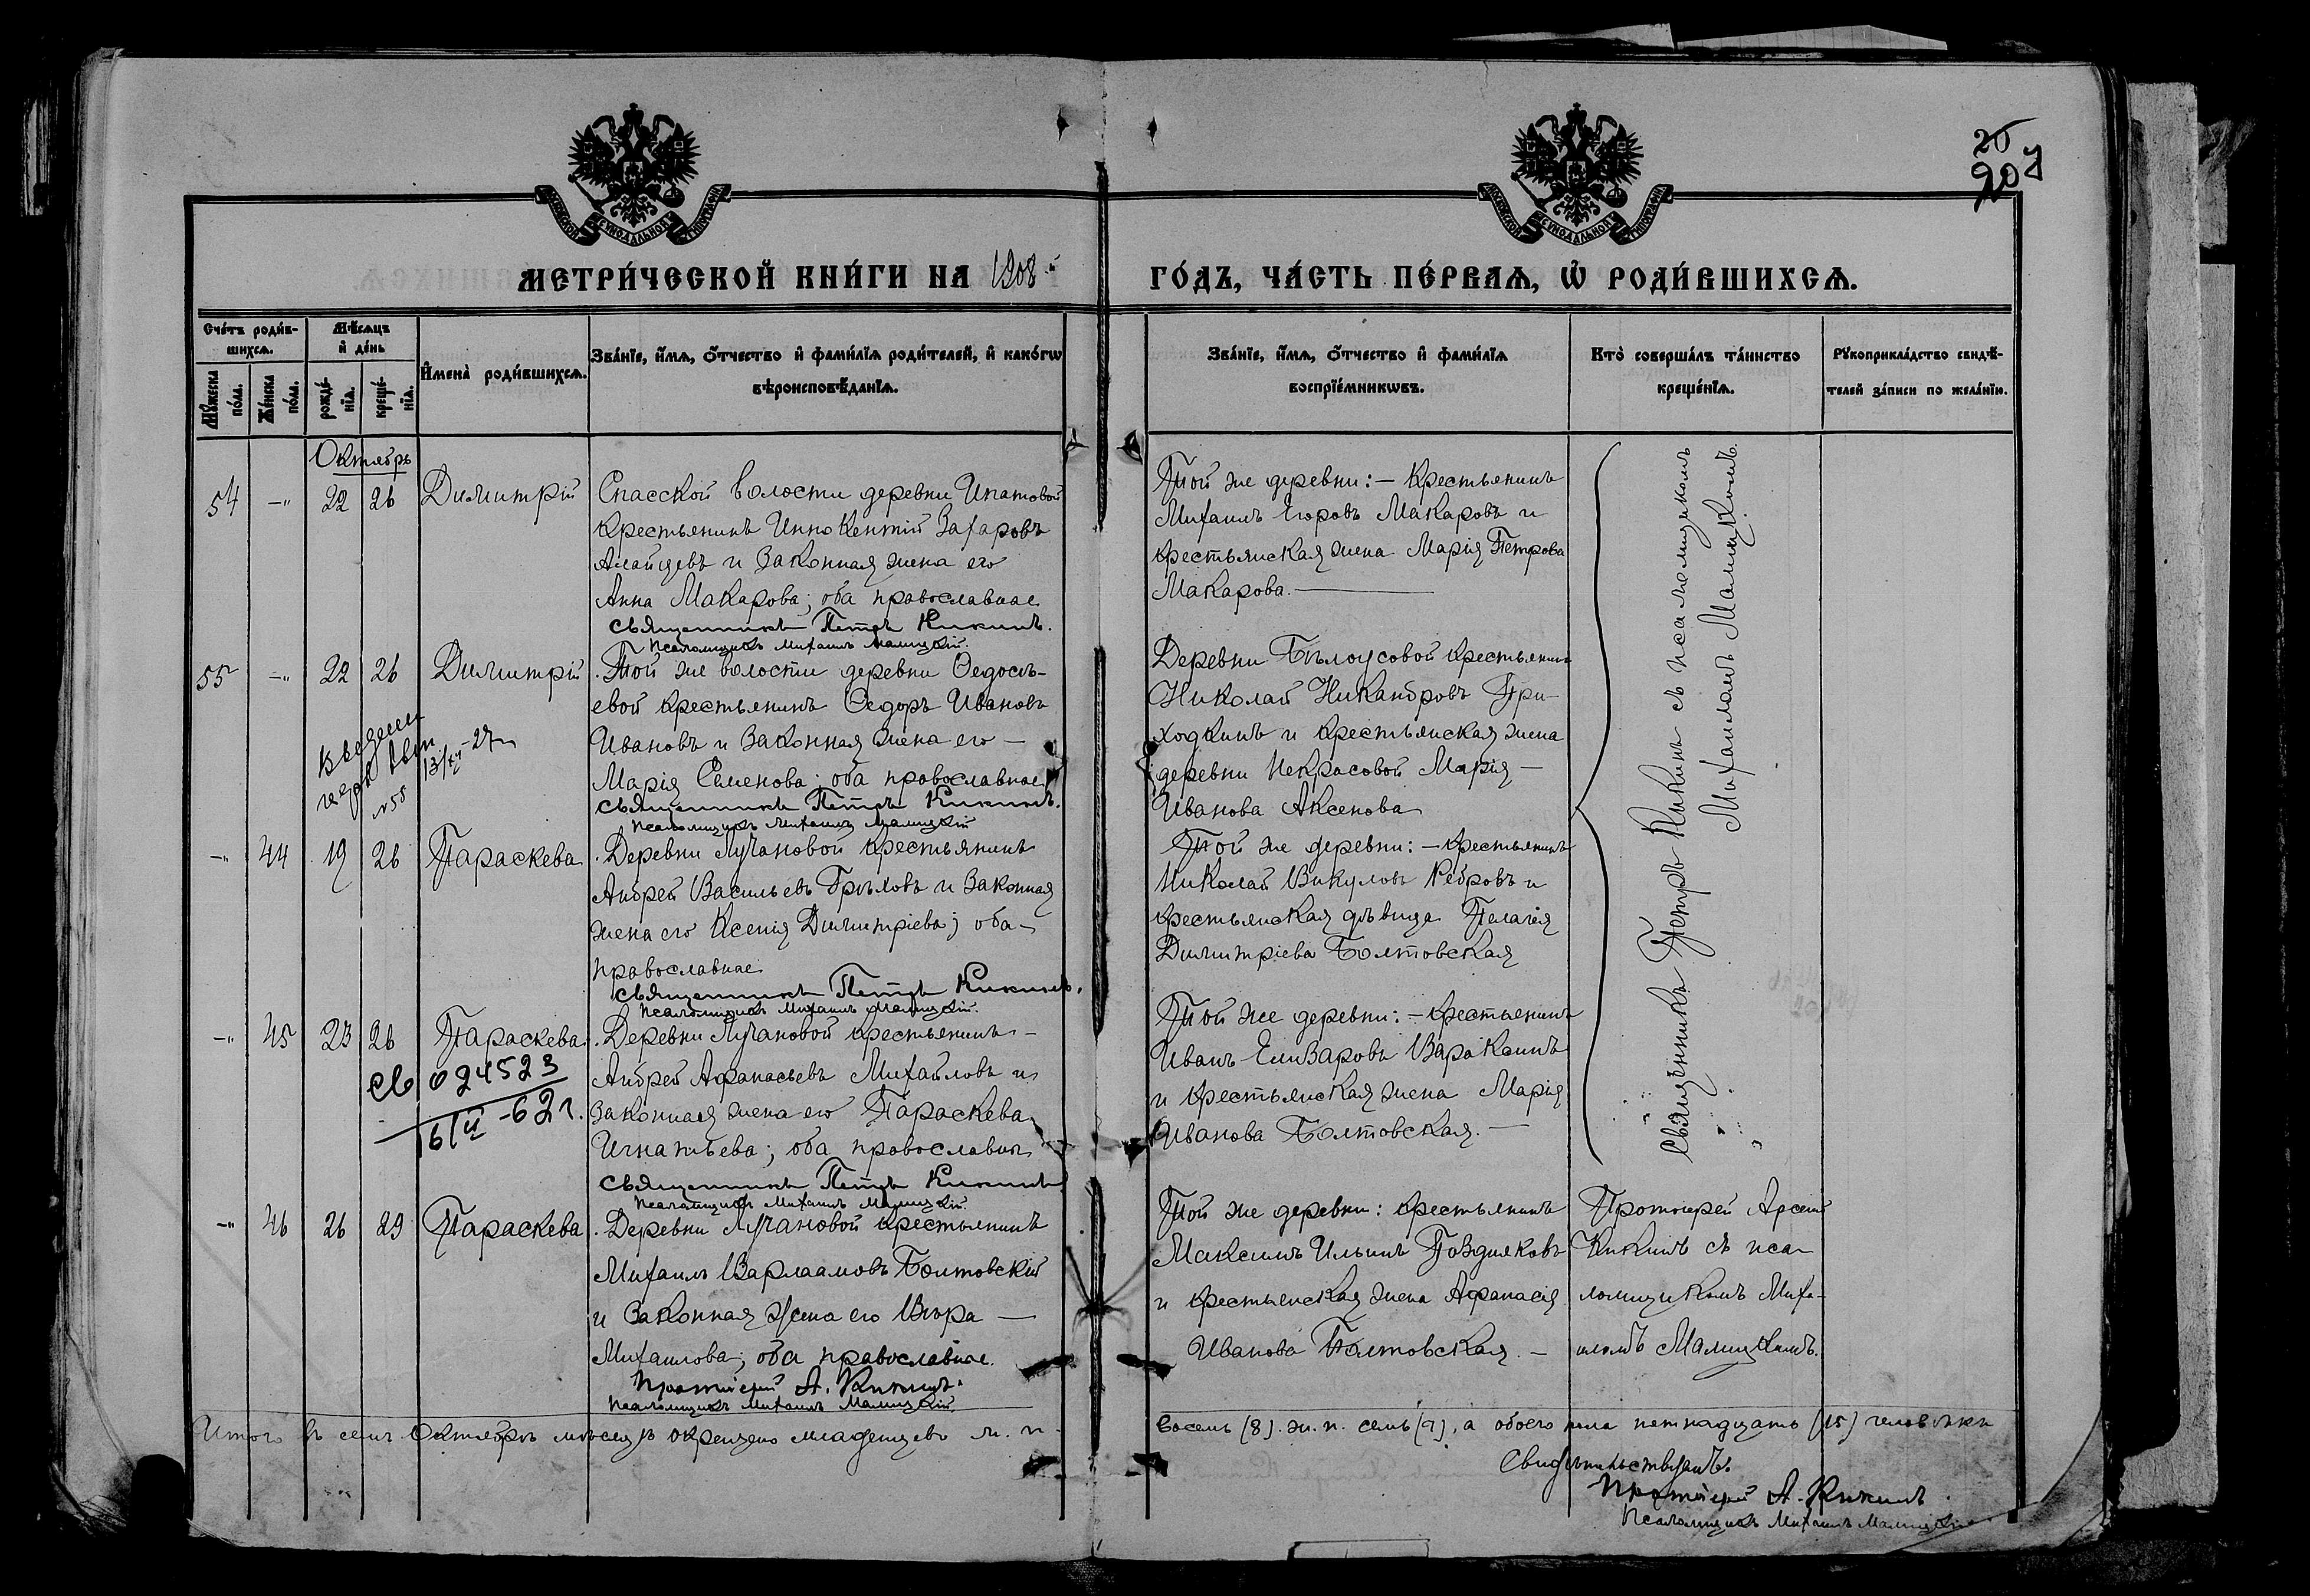 20
МЕТРИЧЕСКОЙ КНИГИ НА 1908-й ГОДЪ, ЧАСТЬ ПЕРВАѦ, Ѡ РОДИВШИХСѦ.
Счетъ родив-
шихсѧ.
Мѣсѧцъ
и день
Имена родившихсѧ.
Званіе, имѧ, отчество и фамиліѧ родителей, и какогѡ
вѣроисповѣданіѧ.
Званіе, имѧ, отчество и фамиліѧ
воспріемникѡвъ.
Кто совершалъ таинство
крещеніѧ.
Рꙋкоприкладство свидѣ-
телей записи по желанію.
Мꙋжеска
пола.
Женска
пола.
рожде-
ніѧ.
креще-
ніѧ.
Октябрь
54 —„ 22 26 Димитрій
Спасской волости деревни Ипатовой
крестьянинъ Иннокентій Захаровъ
Алайцевъ и законная жена его
Анна Макарова; оба православные
Священникъ Петръ Кикинъ.
Псаломщикъ Михаилъ Малицкій.
Той же деревни: — крестьянинъ
Михаилъ Егоровъ Макаровъ и
крестьянская жена Марія Петрова
Макарова. —
55 —„ 22 26 Димитрій
Той же волости деревни Ѳедосѣ-
евой крестьянинъ Ѳедоръ Ивановъ
Ивановъ и законная жена его —
Марія Семенова; оба православные
Священникъ Петръ Кикинъ.
Псаломщикъ Михаилъ Малицкій
13/XII-27
№55
Деревни Бѣлоусовой крестьянинъ
Николай Никандровъ При-
ходкинъ и крестьянская жена
деревни Некрасовой Марія —
Иванова Аксенова
—„ 44 19 26 Параскева
Деревни Лучановой крестьянинъ
Андрей Васильевъ Грѣховъ и законная
жена его Ксенія Димитріева; оба —
православные
Священникъ Петръ Кикинъ.
Псаломщикъ Михаилъ Малицкій.
Той же деревни: — крестьянинъ
Николай Викуловъ Ребровъ и
крестьянская дѣвица Пелагія
Димитріева Болтовская
—„ 45 23 26 Параскева
св 024523
16/II-62 г.
Деревни Лучановой крестьянинъ —
Андрей Афанасьевъ Михайловъ и
законная жена его Параскева
Игнатьева; оба православные
Священникъ Петръ Кикинъ
Псаломщикъ Михаилъ Малицкій.
Той же деревни: — крестьянинъ
Иванъ Елизаровъ Варакинъ
и крестьянская жена Марія
Иванова Болтовская. —
Священникъ Петръ Кикинъ съ псаломщикомъ
Михаиломъ Малицкимъ.
—„ 46 26 29 Параскева
Деревни Лучановой крестьянинъ
Михаилъ Варлаамовъ Болтовскій
и законная жена его Вѣра —
Михаилова; оба православные.
Протоіерей А. Кикинъ.
Псаломщикъ Михаилъ Малицкій.
Той же деревни: крестьянинъ
Максимъ Ильинъ Поздняковъ
и крестьянская жена Афанасія
Иванова Болтовская. —
Протоіерей Арсеній
Кикинъ съ пса-
ломщикомъ Миха-
иломъ Малицкимъ.
Итого въ семъ Октябрѣ мѣсяцѣ окрещено младенцевъ м. п. восемь (8). ж. п. семь (7), а обоего пола пятнадцать (15) человѣкъ
Свидѣтельствуемъ:
Протоіерей А. Кикинъ.
Псаломщикъ Михаилъ Малицкій